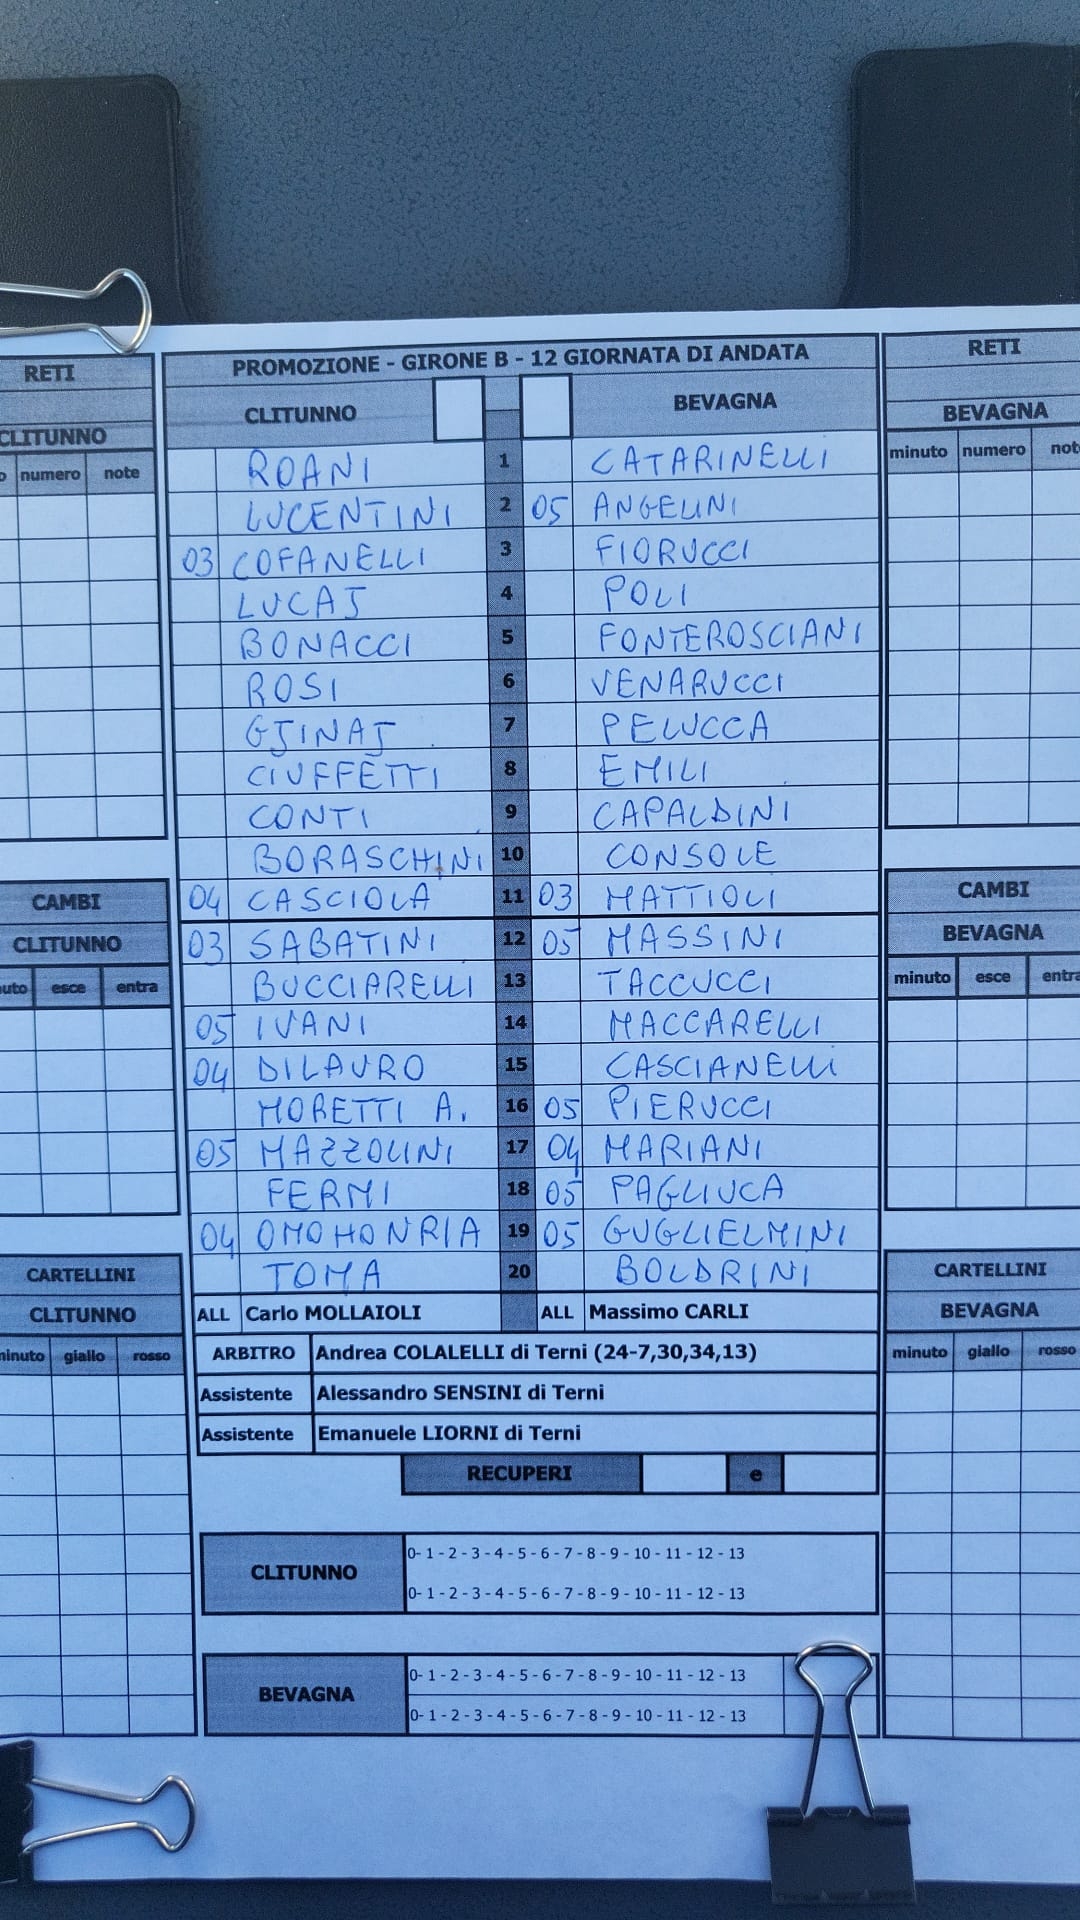 PROMOZIONE - GIRONE B - 12 GIORNATA DI ANDATA
CLITUNNO BEVAGNA
ROANI 1 CATARINELLI
LUCENTINI 2 05 ANGELINI
03 COFANELLI 3 FIORUCCI
LUCAJ 4 POLI
BONACCI 5 FONTEROSCIANI
ROSI 6 VENARUCCI
GJINAJ 7 PELUCCA
CIUFFETTI 8 EMILI
CONTI 9 CAPALDINI
BORASCHINI 10 CONSOLE
04 CASCIOLA 11 03 MATTIOLI
03 SABATINI 12 05 MASSINI
BUCCIARELLI 13 TACCUCCI
05 IVANI 14 MACCARELLI
04 DILAURO 15 CASCIANELLI
MORETTI A. 16 05 PIERUCCI
05 MAZZOLINI 17 04 MARIANI
FERMI 18 05 PAGLIUCA
04 OMOHONRIA 19 05 GUGLIELMINI
TOMA 20 BOLDRINI
ALL Carlo MOLLAIOLI ALL Massimo CARLI
ARBITRO Andrea COLALELLI di Terni (24-7,30,34,13)
Assistente Alessandro SENSINI di Terni
Assistente Emanuele LIORNI di Terni
RECUPERI e
CLITUNNO
0- 1 - 2 - 3 - 4 - 5 - 6 - 7 - 8 - 9 - 10 - 11 - 12 - 13
0- 1 - 2 - 3 - 4 - 5 - 6 - 7 - 8 - 9 - 10 - 11 - 12 - 13
BEVAGNA
0- 1 - 2 - 3 - 4 - 5 - 6 - 7 - 8 - 9 - 10 - 11 - 12 - 13
0- 1 - 2 - 3 - 4 - 5 - 6 - 7 - 8 - 9 - 10 - 11 - 12 - 13
RETI
CLITUNNO
numero note
CAMBI
CLITUNNO
esce entra
CARTELLINI
CLITUNNO
giallo rosso
RETI
BEVAGNA
minuto numero
CAMBI
BEVAGNA
minuto esce
CARTELLINI
BEVAGNA
minuto giallo rosso